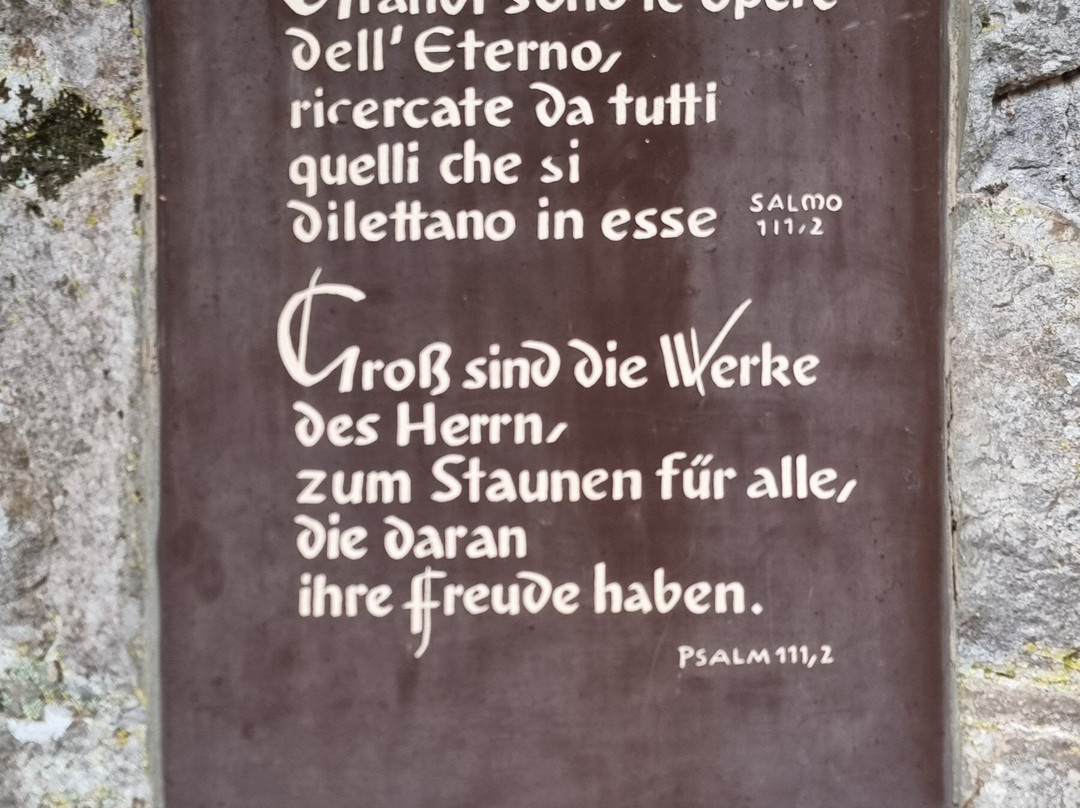 Grandi sono le opere
dell'Eterno,
ricercate da tutti
quelli che si
dilettano in esse
SALMO
111,2
Groß sind die Werke
des Herrn,
zum Staunen für alle,
die daran
ihre Freude haben.
PSALM 111,2